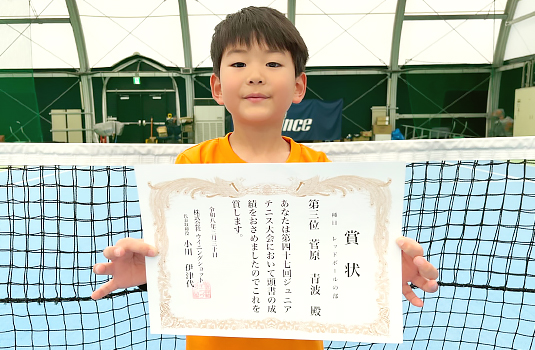 賞状
種目 レッドボールの部
第三位 菅原 青波 殿
あなたは第四十七回ジュニア
テニス大会において頭書の成
績をおさめましたのでこれを
賞します。
令和八年
株式会社ウイニングショット
小川 伊津代
nce